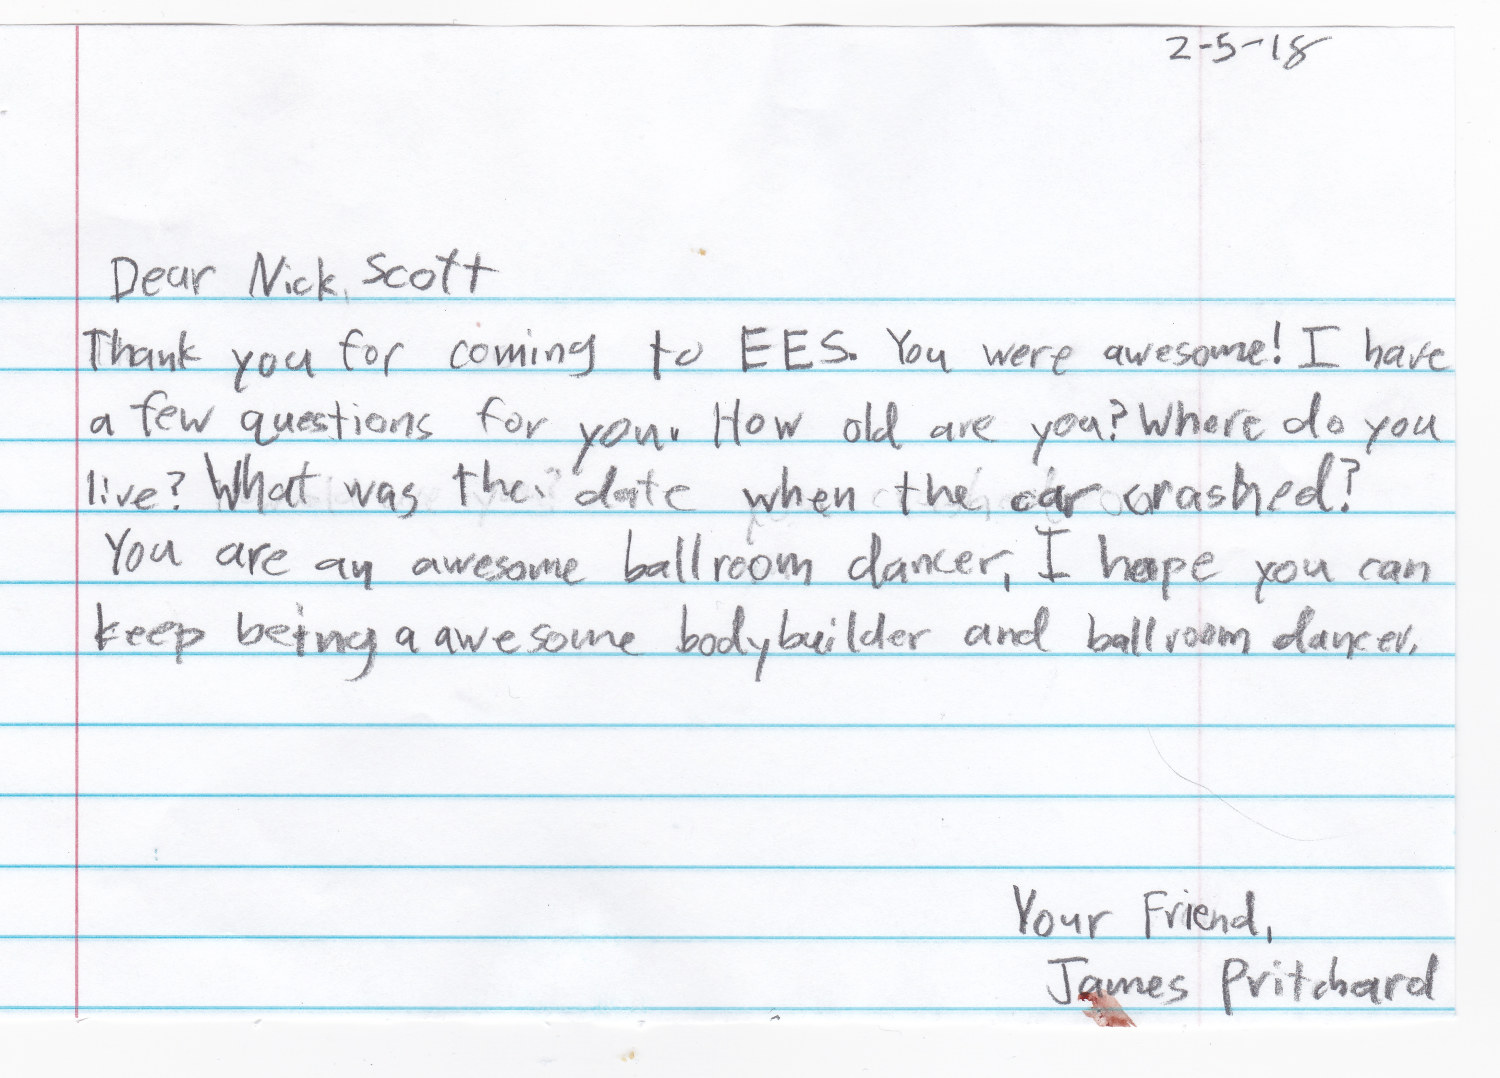 2-5-18
Dear Nick, Scott
Thank you for coming to EES. You were awesome! I have
a few questions for you. How old are you? Where do you
live? What was the date when the car crashed?
You are an awesome ballroom dancer, I hope you can
keep being a awesome bodybuilder and ballroom dancer.
Your Friend,
James Pritchard